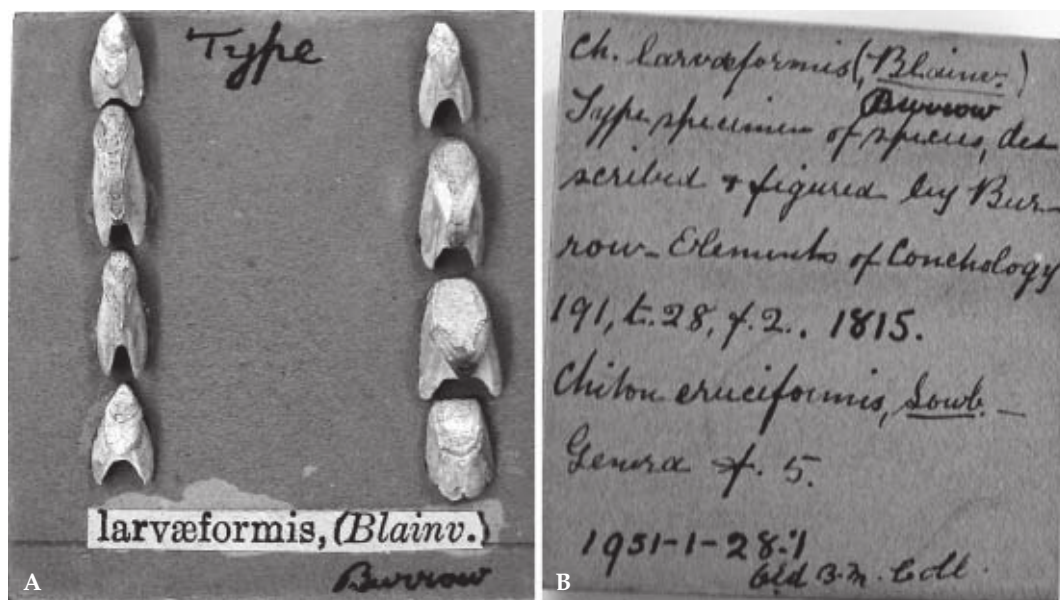 Type
larvæformis, (Blainv.)
Burrow
A
Ch. larvæformis (Blainv.)
Burrow
Type specimen of species, des
cribed & figured by Bur-
row – Elements of Conchology
191, t. 28, f. 2., 1815.
Chiton eruciformis, Sowb. –
Genera f. 5.
1951-1-28.1
Old B.M. Coll.
B